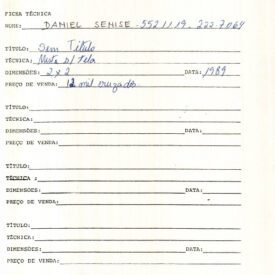 FICHA TÉCNICA
NOME: DANIEL SENISE - 552 11 19 - 225-7064
TÍTULO: Sem Título
TÉCNICA: Mista s/ tela
DIMENSÕES: 2 x 2 DATA: 1989
PREÇO DE VENDA: 12 mil cruzados
TÍTULO:
TÉCNICA:
DIMENSÕES: DATA:
PREÇO DE VENDA:
TÍTULO:
TÉCNICA:
DIMENSÕES: DATA:
PREÇO DE VENDA:
TÍTULO:
TÉCNICA:
DIMENSÕES: DATA:
PREÇO DE VENDA: